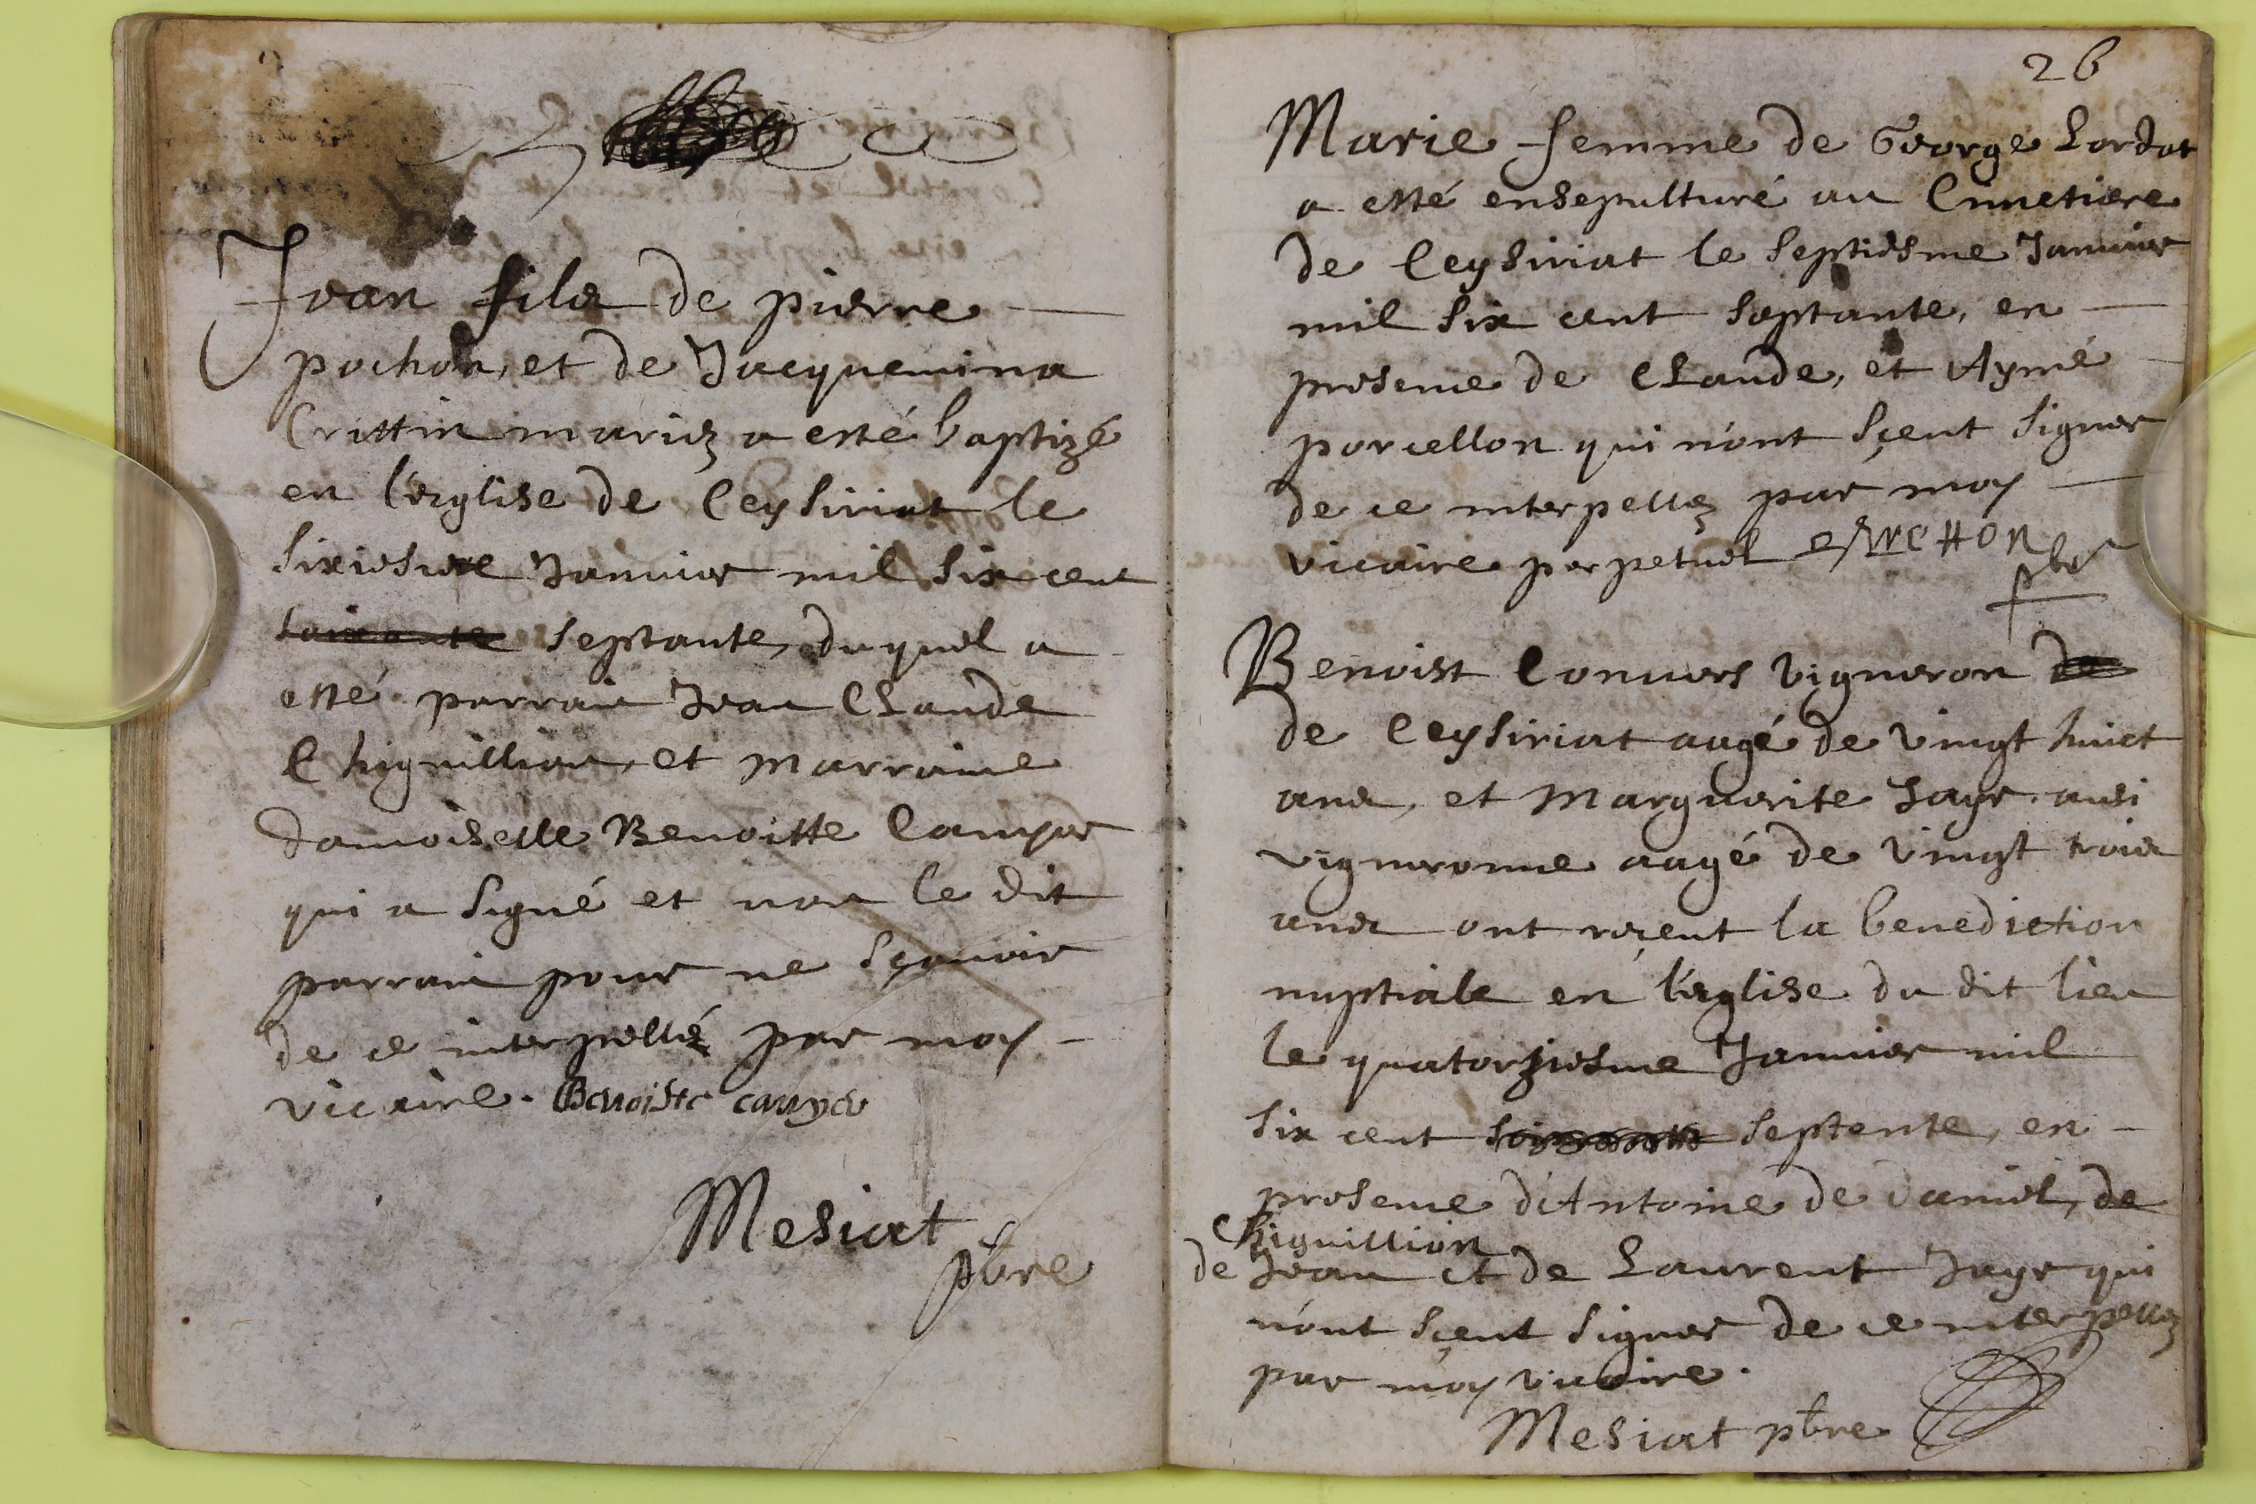 Jean fils de pierre
pochon, et de Jacquemina
Crittin mariez a esté baptizé
en l'esglise de Ceysiriat le
sixiesme Januier mil six cent
soixante septante, duquel a
esté parrain Jean Claude
Chiguillion, et marraine
damoiselle Benoitte Canyer
qui a signé et non le dit
parrain pour ne sçauoir
de ce interpellé par moy
vicaire. Benoiste canyer
Mesiat
pbre
26
Marie femme de George Lordat
a esté ensepulturé au Cimetiere
de Ceysiriat le septiesme Januier
mil six cent septante, en
presence de Claude, et Aymé
porcellon qui n'ont sçeut signer
de ce interpellez par moy
vicaire perpetuel
pbr
Benoist Conuers vigneron de
de Ceysiriat aagé de vingt huict
ans, et Marguerite Jayr ausi
vigneronne aagé de vingt trois
ans ont reçeut la benediction
nuptiale en l'esglise du dit lieu
le quatorziesme Januier mil
six cent soixante septente, en
presence d'Antoine de Daniel, de
Chiguillion
de Jean et de Laurent Jayr qui
n'ont sçeut signer de ce interpellez
par moy vicaire.
Mesiat pbre